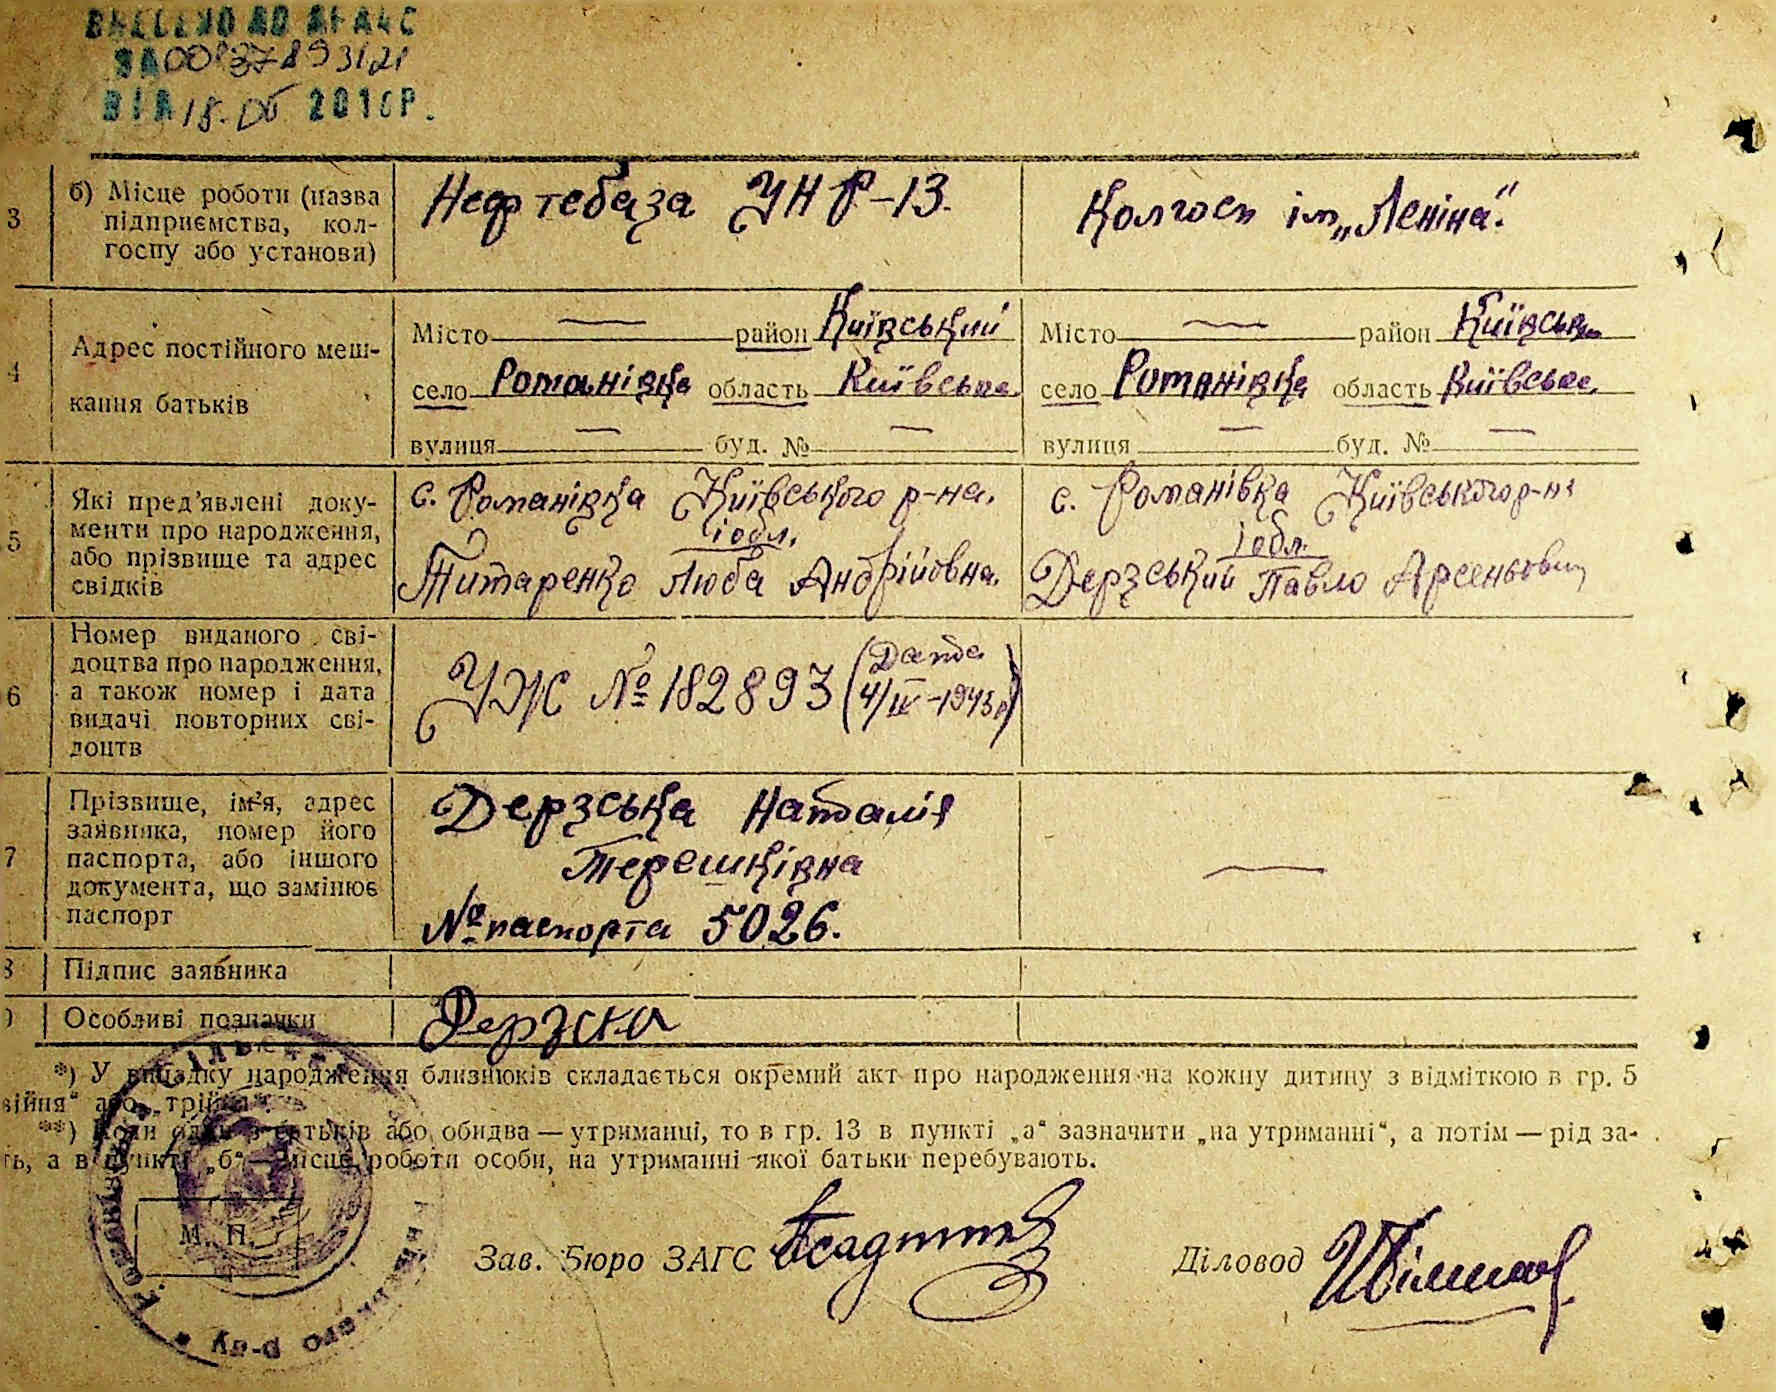 ВНЕСЕНО ДО ДРАЦС
ЗА 0013789312
ВІД 18. 2016Р.
3 б) Місце роботи (назва підприємства, колгоспу або установи)
Нефтебаза УНР-13.
Колгосп ім „Леніна".
4 Адрес постійного мешкання батьків
Місто — район Київський
село Романівка область Київська
вулиця — буд. № —
Місто — район Київськ
село Романівка область Київська
вулиця — буд. № —
5 Які пред'явлені документи про народження, або прізвище та адрес свідків
с. Романівка Київського р-на.
і обл.
Титаренко Люба Андрійовна.
с. Романівка Київського р-н
і обл.
Дерзський Павло Арсеньович
6 Номер виданого свідоцтва про народження, а також номер і дата видачі повторних свідоцтв
УЖ № 182893 (Дата
4/IV-1945р)
7 Прізвище, ім'я, адрес заявника, номер його паспорта, або іншого документа, що замінює паспорт
Дерзська Наталія
Терешківна
№ паспорта 5026.
—
Підпис заявника
Особливі позначки
Дерзска
*) У випадку народження близнюків складається окремий акт про народження на кожну дитину з відміткою в гр. 5
війня" або „трійня".
**) Коли один з батьків або обидва — утриманці, то в гр. 13 в пункті „а" зазначити „на утриманні", а потім — рід за-
ть, а в пункті „б" — місце роботи особи, на утриманні якої батьки перебувають.
М. П.
Зав. Бюро ЗАГС
Діловод
р-ну